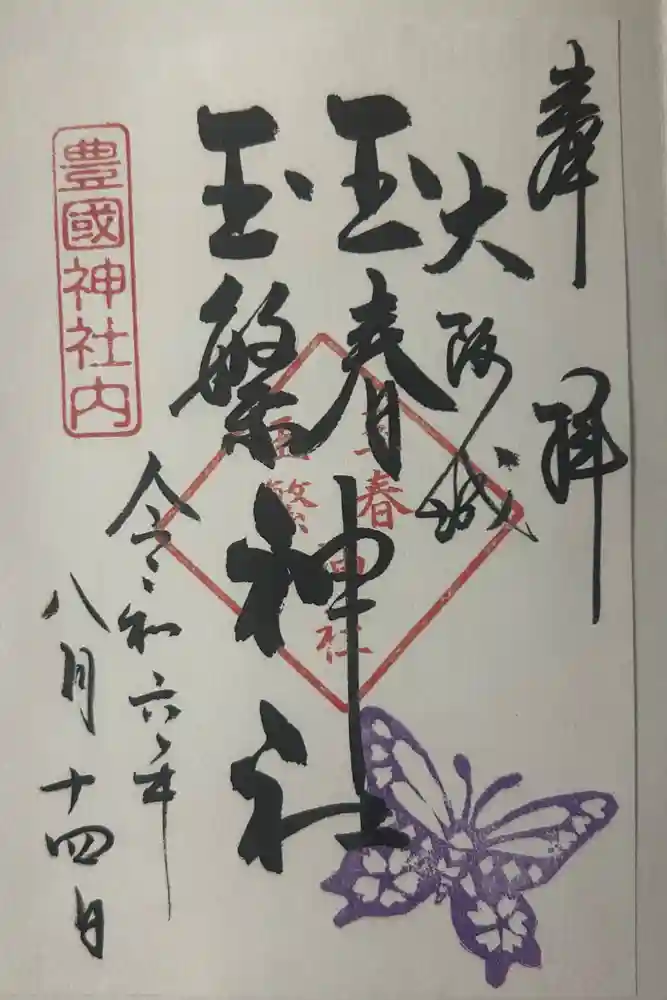 奉拝
大阪城
玉春
玉繁
神社
玉春
玉繁
神社
令和六年
八月十四日
豊國神社内